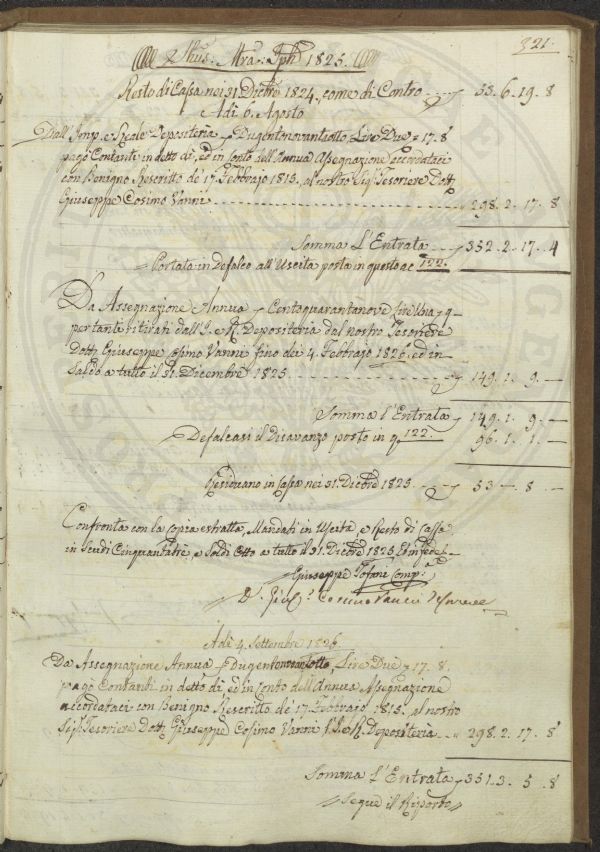 321.
Jhus. Mra: Jph 1825.
Resto di Cassa nei 31. Dicbre 1824, come di Contro 53. 6. 19. 8
Adì 6. Agosto
Dall'Imp. e Reale Depositeria Dugentonovantotto, Lire Due = 17. 8
pagò Contanti in detto dì, ed in Conto dell'Annua Assegnazione accordataci
con Benigno Rescritto de' 17. Febbrajo 1815. al nostro Sig. Tesoriere Dott.
Giuseppe Cosimo Vanni 298. 2. 17. 8
Somma L'Entrata 352. 2. 17. 4
Portata in Defalco all'Uscita posta in questo ac 122.
Da Assegnazione Annua Centoquarantanove Lire Una = 9 -
per tanti ritirati dall'I. e R. Depositeria dal nostro Tesoriere
Dott. Giuseppe Cosimo Vanni fino dei 4. Febbrajo 1826. ed in
Saldo a tutto il 31. Decembre 1825 149. 1. 9. —
Somma l'Entrata 149. 1. 9. —
Defalcasi il Disavanzo posto in q 122. 96. 1. 1. —
Residuano in Cassa nei 31. Dicbre 1825. 53 - 8 —
Confronta con la copia estratta, Mandati in Uscita, e Resto di Cassa
in Scudi Cinquantatrè, e Soldi Otto a tutto il 31. Dicbre 1825. In fede
Giuseppe Tofani Comp.
D. Gius. Cosimo Vanni Tesoriere
Adì 4. Settembre 1826
Da Assegnazione Annua Dugentonovantotto, Lire Due = 17. 8.
pagò Contanti in detto dì, ed in Conto dell'Annua Assegnazione
accordataci con Benigno Rescritto de' 17. Febbrajo 1815. al nostro
Sig. Tesoriere Dott. Giuseppe Cosimo Vanni l'I. e R. Depositeria 298. 2. 17. 8
Somma L'Entrata 351. 3. 5. 8
Segue il Riporto